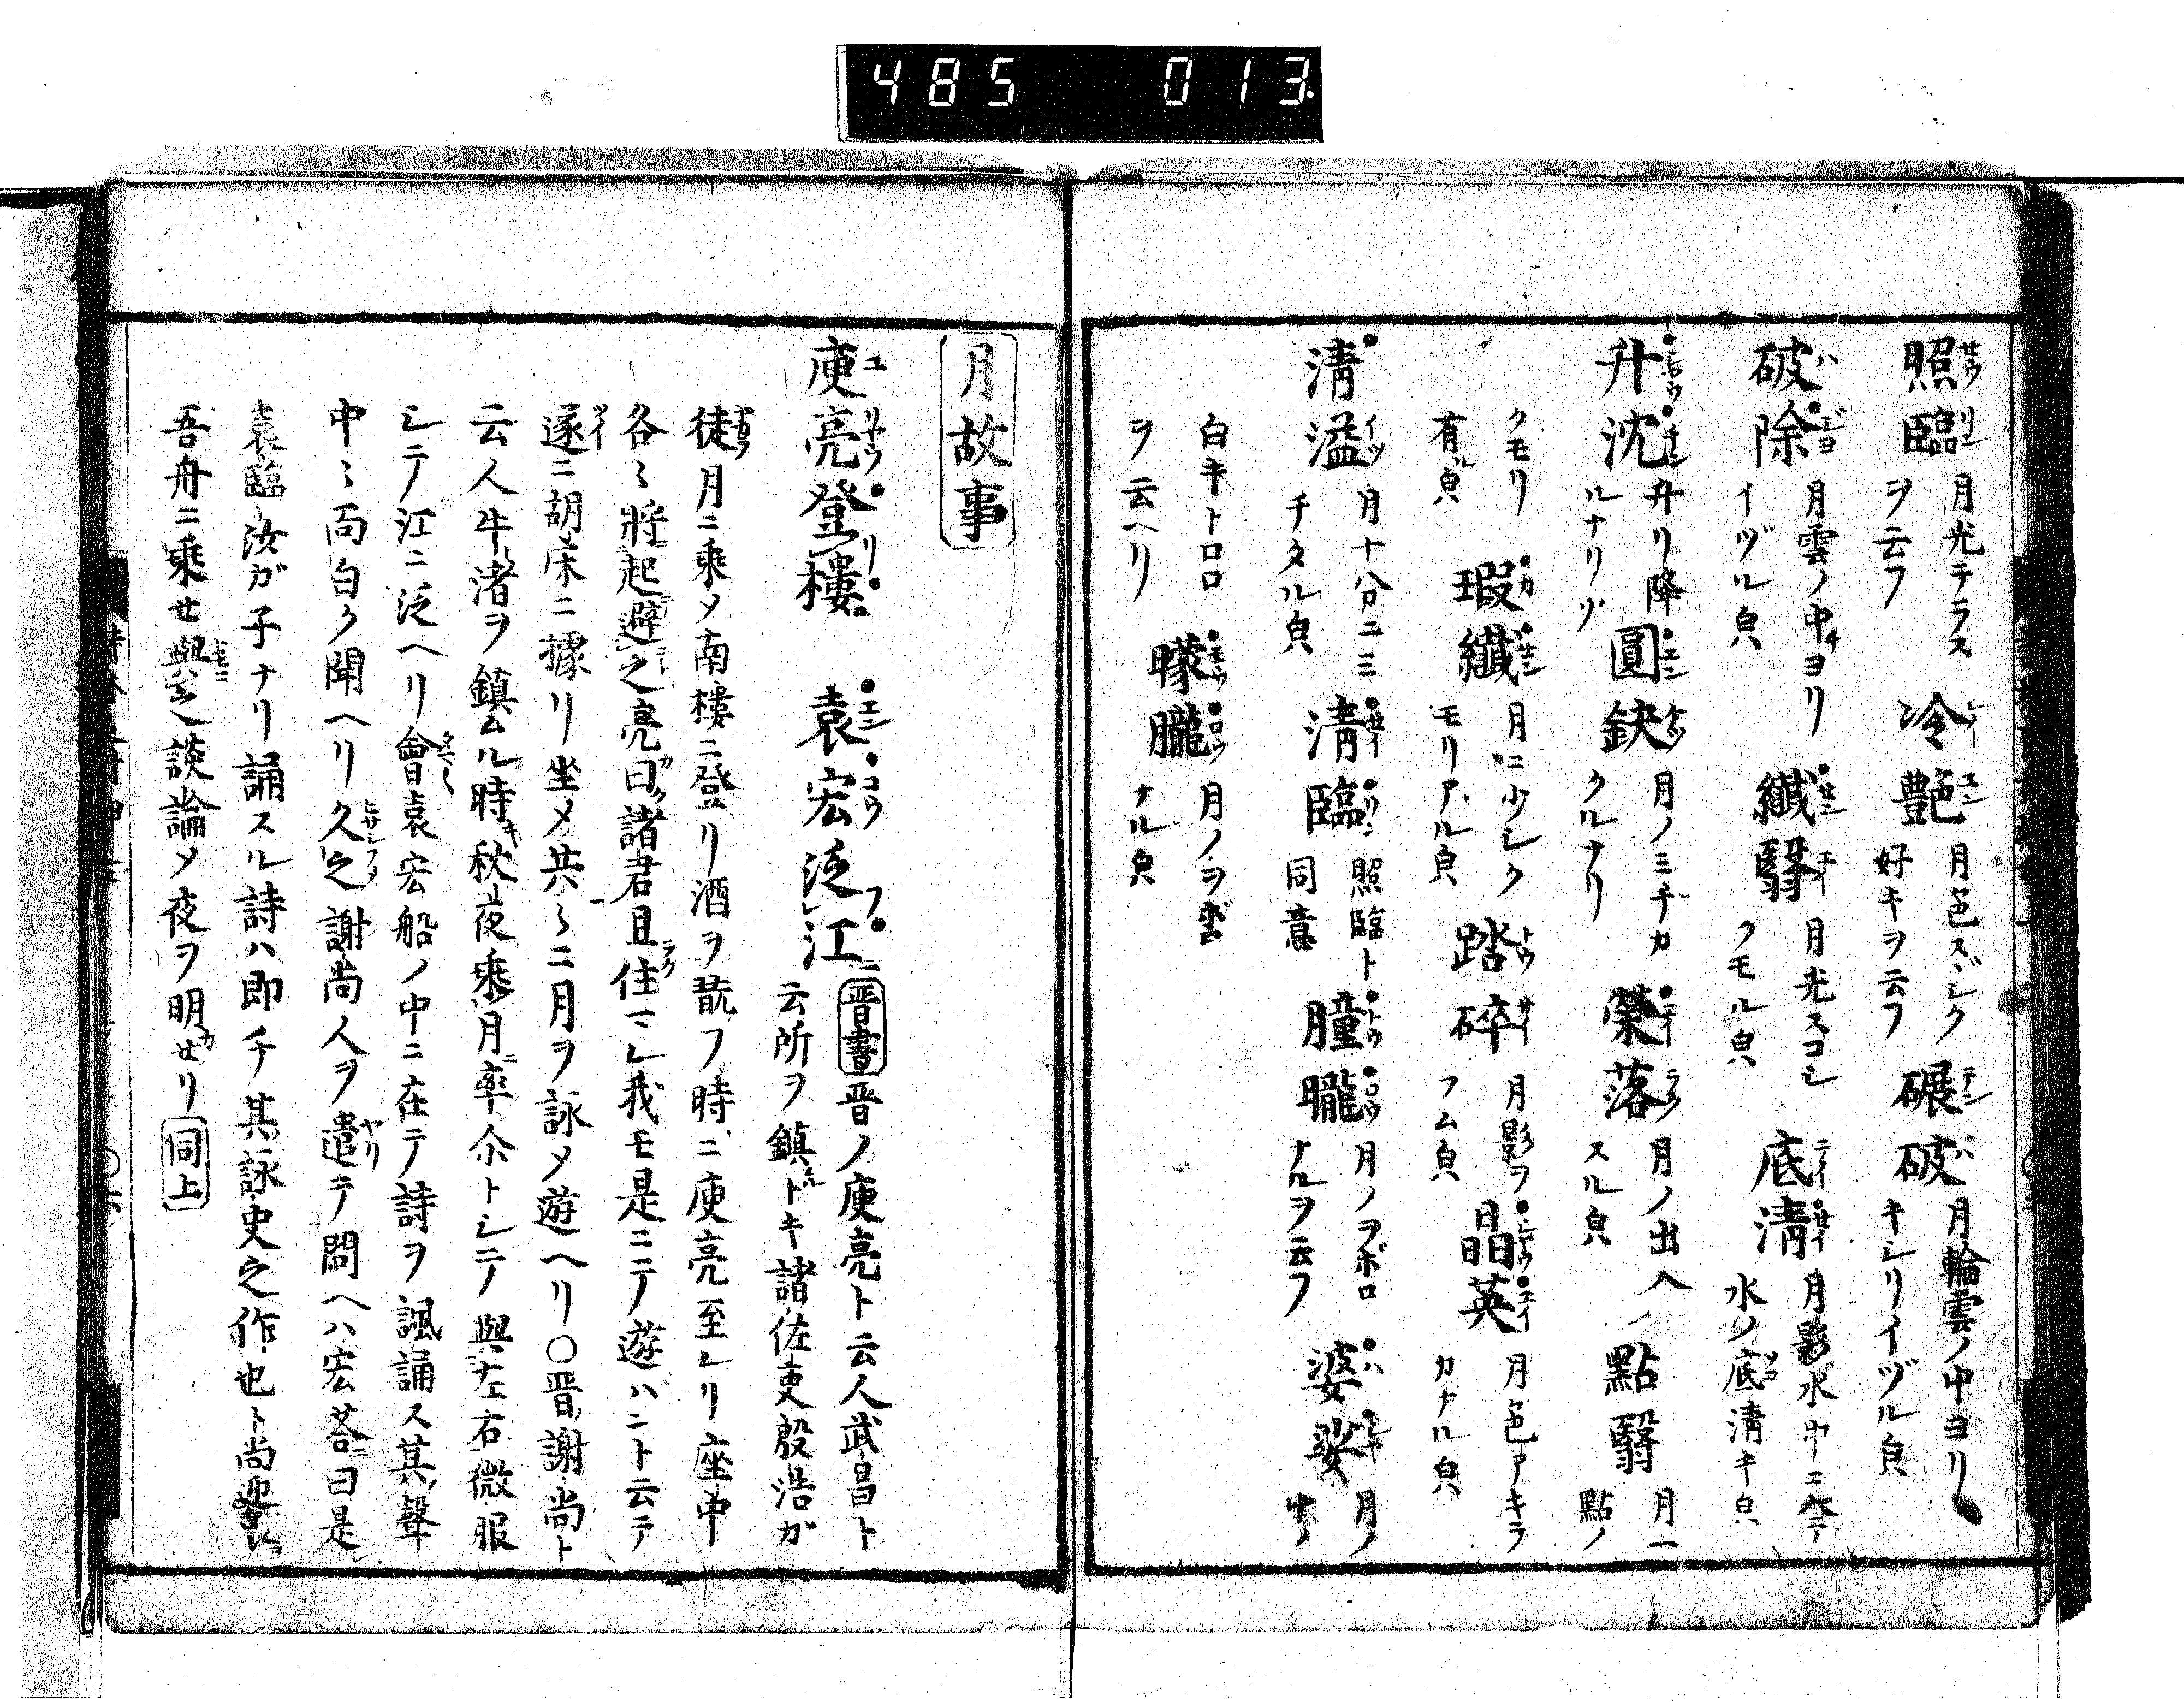 485 013
照臨 月光テラスヲ云フ 冷艶 月色スヾシク好キヲ云フ 碾破 月輪雲ノ中ヨリキシリイヅル皃
破除 月雲ノ中ヨリイヅル皃 纎翳 月光スコシクモル皃 底清 月影水中ニ入テ水ノ底清キ皃
升沈 升リ降ルナリ 圓缺 月ノミチカクルナリ 榮落 月ノ出入スル皃 點翳 月一點ノ
クモリ有ル皃 瑕纎 月ニ少シクモリアル皃 踏碎 月影ヲフム皃 晶英 月色アキラカナル皃
清溢 月十分ニミチタル皃 清臨 照臨ト同意 朣朧 月ノヲボロナルヲ云フ 婆娑 月ノ中ノ
白キトロロヲ云ヘリ 曚朧 月ノヲボロナル皃
月故事
庾亮登樓 袁宏泛江 晋書 晋ノ庾亮ト云人武昌ト
云所ヲ鎮ルトキ諸佐吏殷浩ガ
徒月ニ乘メ南樓ニ登リ酒ヲ翫フ時ニ庾亮至レリ座中
各〻將起避之亮曰諸君且住マレ我モ是ニテ遊ハント云テ
遂ニ胡床ニ據リ坐メ共〻ニ月ヲ詠メ遊ヘリ〇晋謝尚ト
云人牛渚ヲ鎮ムル時秋夜乘月率尒トシテ與左右微服
シテ江ニ泛ヘリ會袁宏船ノ中ニ在テ詩ヲ諷誦ス其聲
中〻面白ク聞ヘリ久之謝尚人ヲ遣テ問ヘハ宏荅曰是
袁臨汝ガ子ナリ誦スル詩ハ即チ其詠史之作也ト尚迎
吾舟ニ乘セ與之談論メ夜ヲ明セリ 同上